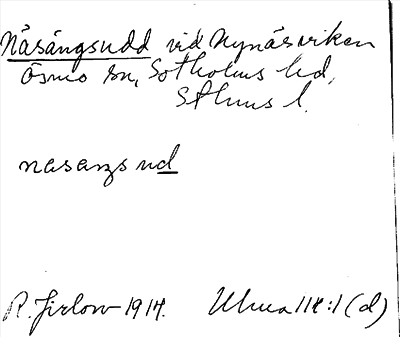 Nåsängsudd vid Nynäsviken
Ösmo sn, Sotholms hd,
Sthlms l.
nasaŋs ud
R. Jirlow 1914. Ulma 118:1 (d)